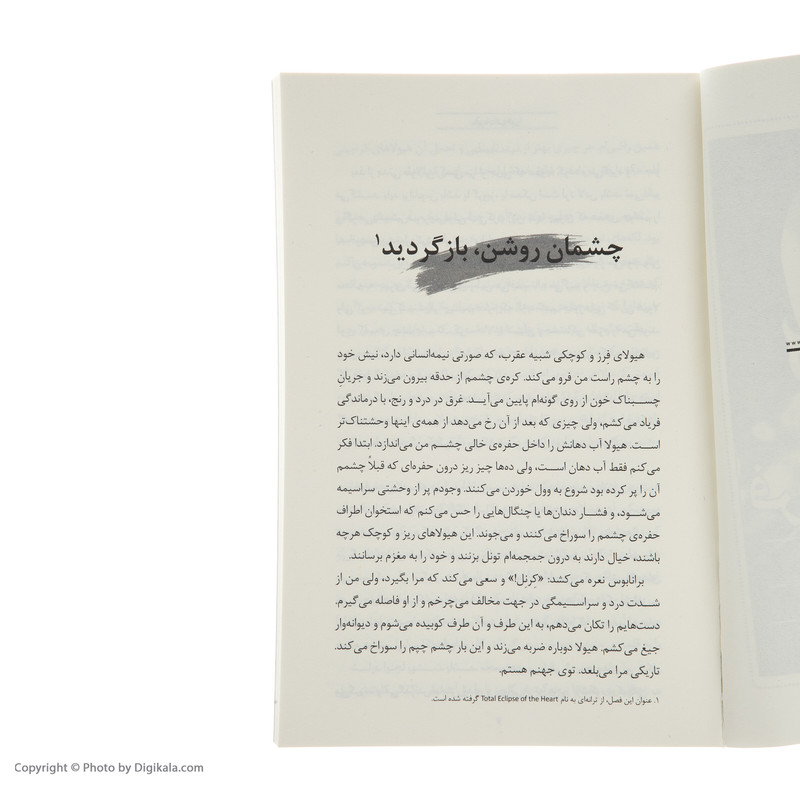 چشمان روشن، بازگردید۱
هیولای فرز و کوچکی شبیه عقرب، که صورتی نیمه‌انسانی دارد، نیش خود
را به چشم راست من فرو می‌کند. کره‌ی چشمم از حدقه بیرون می‌زند و جریانِ
چسبناک خون از روی گونه‌ام پایین می‌آید. غرق در درد و رنج، با درماندگی
فریاد می‌کشم، ولی چیزی که بعد از آن رخ می‌دهد از همه‌ی اینها وحشتناک‌تر
است. هیولا آب دهانش را داخل حفره‌ی خالی چشم من می‌اندازد. ابتدا فکر
می‌کنم فقط آب دهان است، ولی ده‌ها چیز ریز درون حفره‌ای که قبلاً چشمم
آن را پر کرده بود شروع به وول خوردن می‌کنند. وجودم پر از وحشتی سراسیمه
می‌شود، و فشار دندان‌ها یا چنگال‌هایی را حس می‌کنم که استخوان اطراف
حفره‌ی چشمم را سوراخ می‌کنند و می‌جوند. این هیولاهای ریز و کوچک هرچه
باشند، خیال دارند به درون جمجمه‌ام تونل بزنند و خود را به مغزم برسانند.
برانابوس نعره می‌کشد: «کرنل!» و سعی می‌کند که مرا بگیرد، ولی من از
شدت درد و سراسیمگی در جهت مخالف می‌چرخم و از او فاصله می‌گیرم.
دست‌هایم را تکان می‌دهم، به این طرف و آن طرف کوبیده می‌شوم و دیوانه‌وار
جیغ می‌کشم. هیولا دوباره ضربه می‌زند و این بار چشم چپم را سوراخ می‌کند.
تاریکی مرا می‌بلعد. توی جهنم هستم.
۱. عنوان این فصل، از ترانه‌ای به نام Total Eclipse of the Heart گرفته شده است.
www
Copyright © Photo by Digikala.com